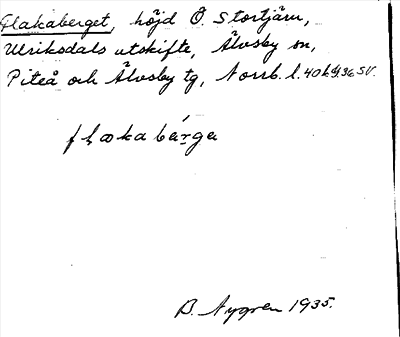 Flakaberget, höjd Ö. Stortjärn,
Ulriksdals utskifte, Älvsby sn,
Piteå och Älvsby tg, Norrb. l. 40 k 9, 36 SV.
flakabärge
B. Nygren 1935.